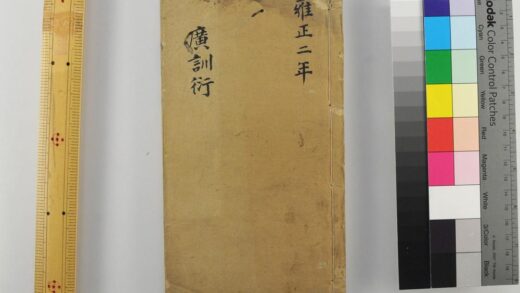 雍正二年
廣訓衍
Kodak
Color Control Patches
Blue
Cyan
Green
Yellow
Red
Magenta
White
3/Color
Black